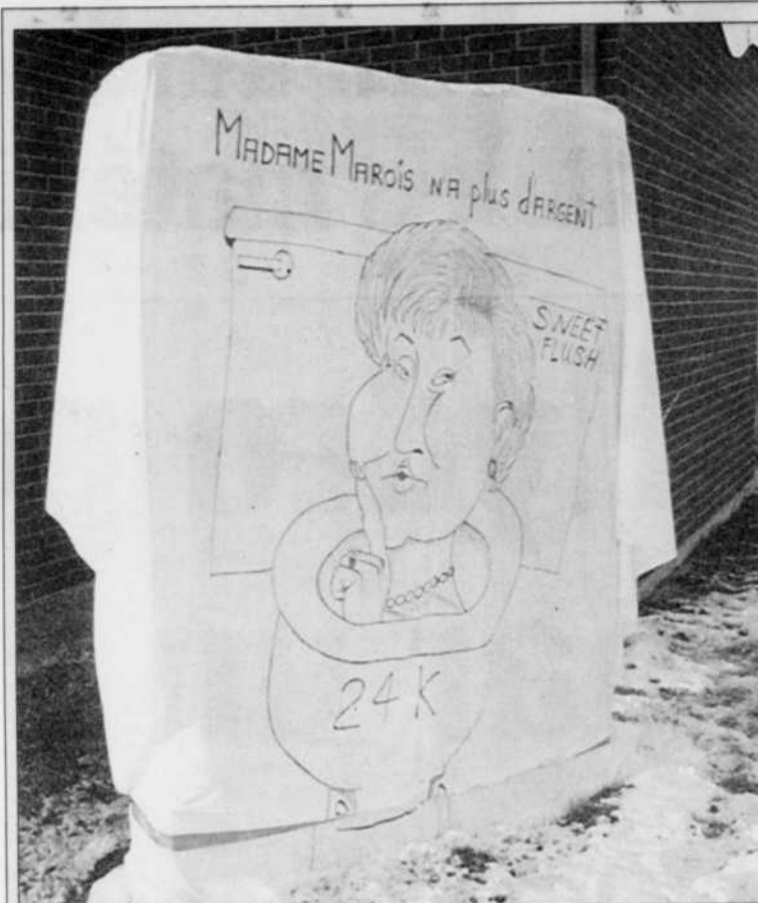 MADAME MAROIS N'A plus d'ARGENT
SWEET
FLUSH
24K